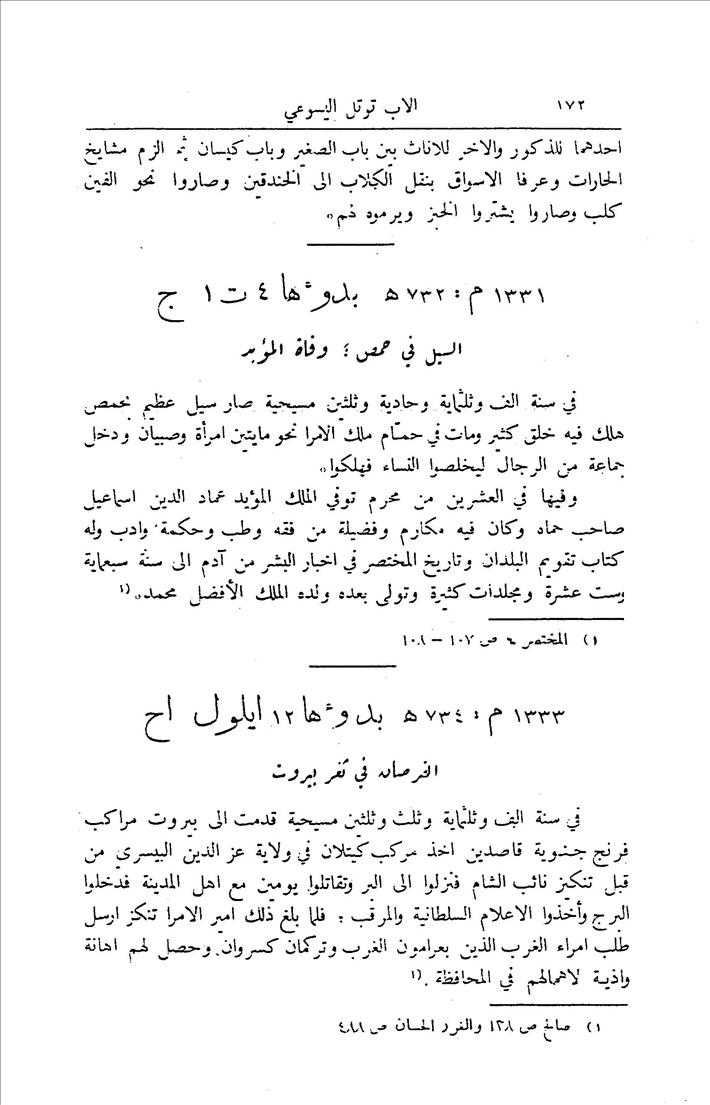 ١٧٢ الاب توتل اليسوعي
احدهما للذكور والاخر للاناث بين باب الصغير وباب كيسان ثم الزم مشايخ
الحارات وعرفا الاسواق بنقل الكلاب الى الخندقين وصاروا نحو الفين
كلب وصاروا يشتروا الخبز ويرموه لهم»
١٣٣١ م : ٧٣٢ ه بدوءها ٤ ت ١ ج
السيل في حمص ؛ وفاة المؤيد
في سنة الف وثلثماية وحادية وثلثين مسيحية صار سيل عظيم بحمص
هلك فيه خلق كثير ومات في حمام ملك الامرا نحو مايتين امرأة وصبيان ودخل
جماعة من الرجال ليخلصوا النساء فهلكوا»
وفيها في العشرين من محرم توفي الملك المؤيد عماد الدين اسماعيل
صاحب حماه وكان فيه مكارم وفضيلة من فقه وطب وحكمة وادب وله
كتاب تقويم البلدان وتاريخ المختصر في اخبار البشر من آدم الى سنة سبعماية
وست عشرة ومجلدات كثيرة وتولى بعده ولده الملك الأفضل محمد»(١
١) المختصر ٤ ص ١٠٧ – ١٠٨
١٣٣٣ م : ٧٣٤ ه بدوءها ١٢ ايلول اح
القرصان في ثغر بيروت
في سنة الف وثلثماية وثلث وثلثين مسيحية قدمت الى بيروت مراكب
فرنج جنوية قاصدين اخذ مركب كيتلان في ولاية عز الدين البيسري من
قبل تنكيز نائب الشام فنزلوا الى البر وتقاتلوا يومين مع اهل المدينة فدخلوا
البرج وأخذوا الاعلام السلطانية والمرقب ؛ فلما بلغ ذلك امير الامرا تنكز ارسل
طلب امراء الغرب الذين بعرامون الغرب وتركمان كسروان وحصل لهم اهانة
واذية لاهمالهم في المحافظة .(١
١) صالح ص ١٣٨ والغرر الحسان ص